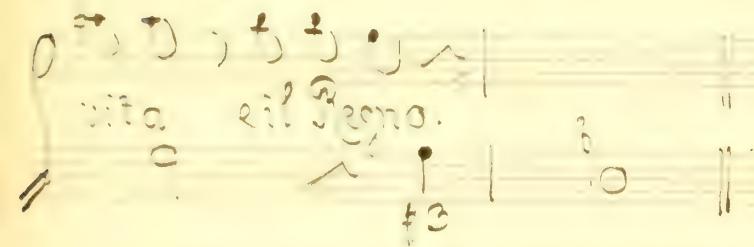 vita e il Regno.
♯3
6